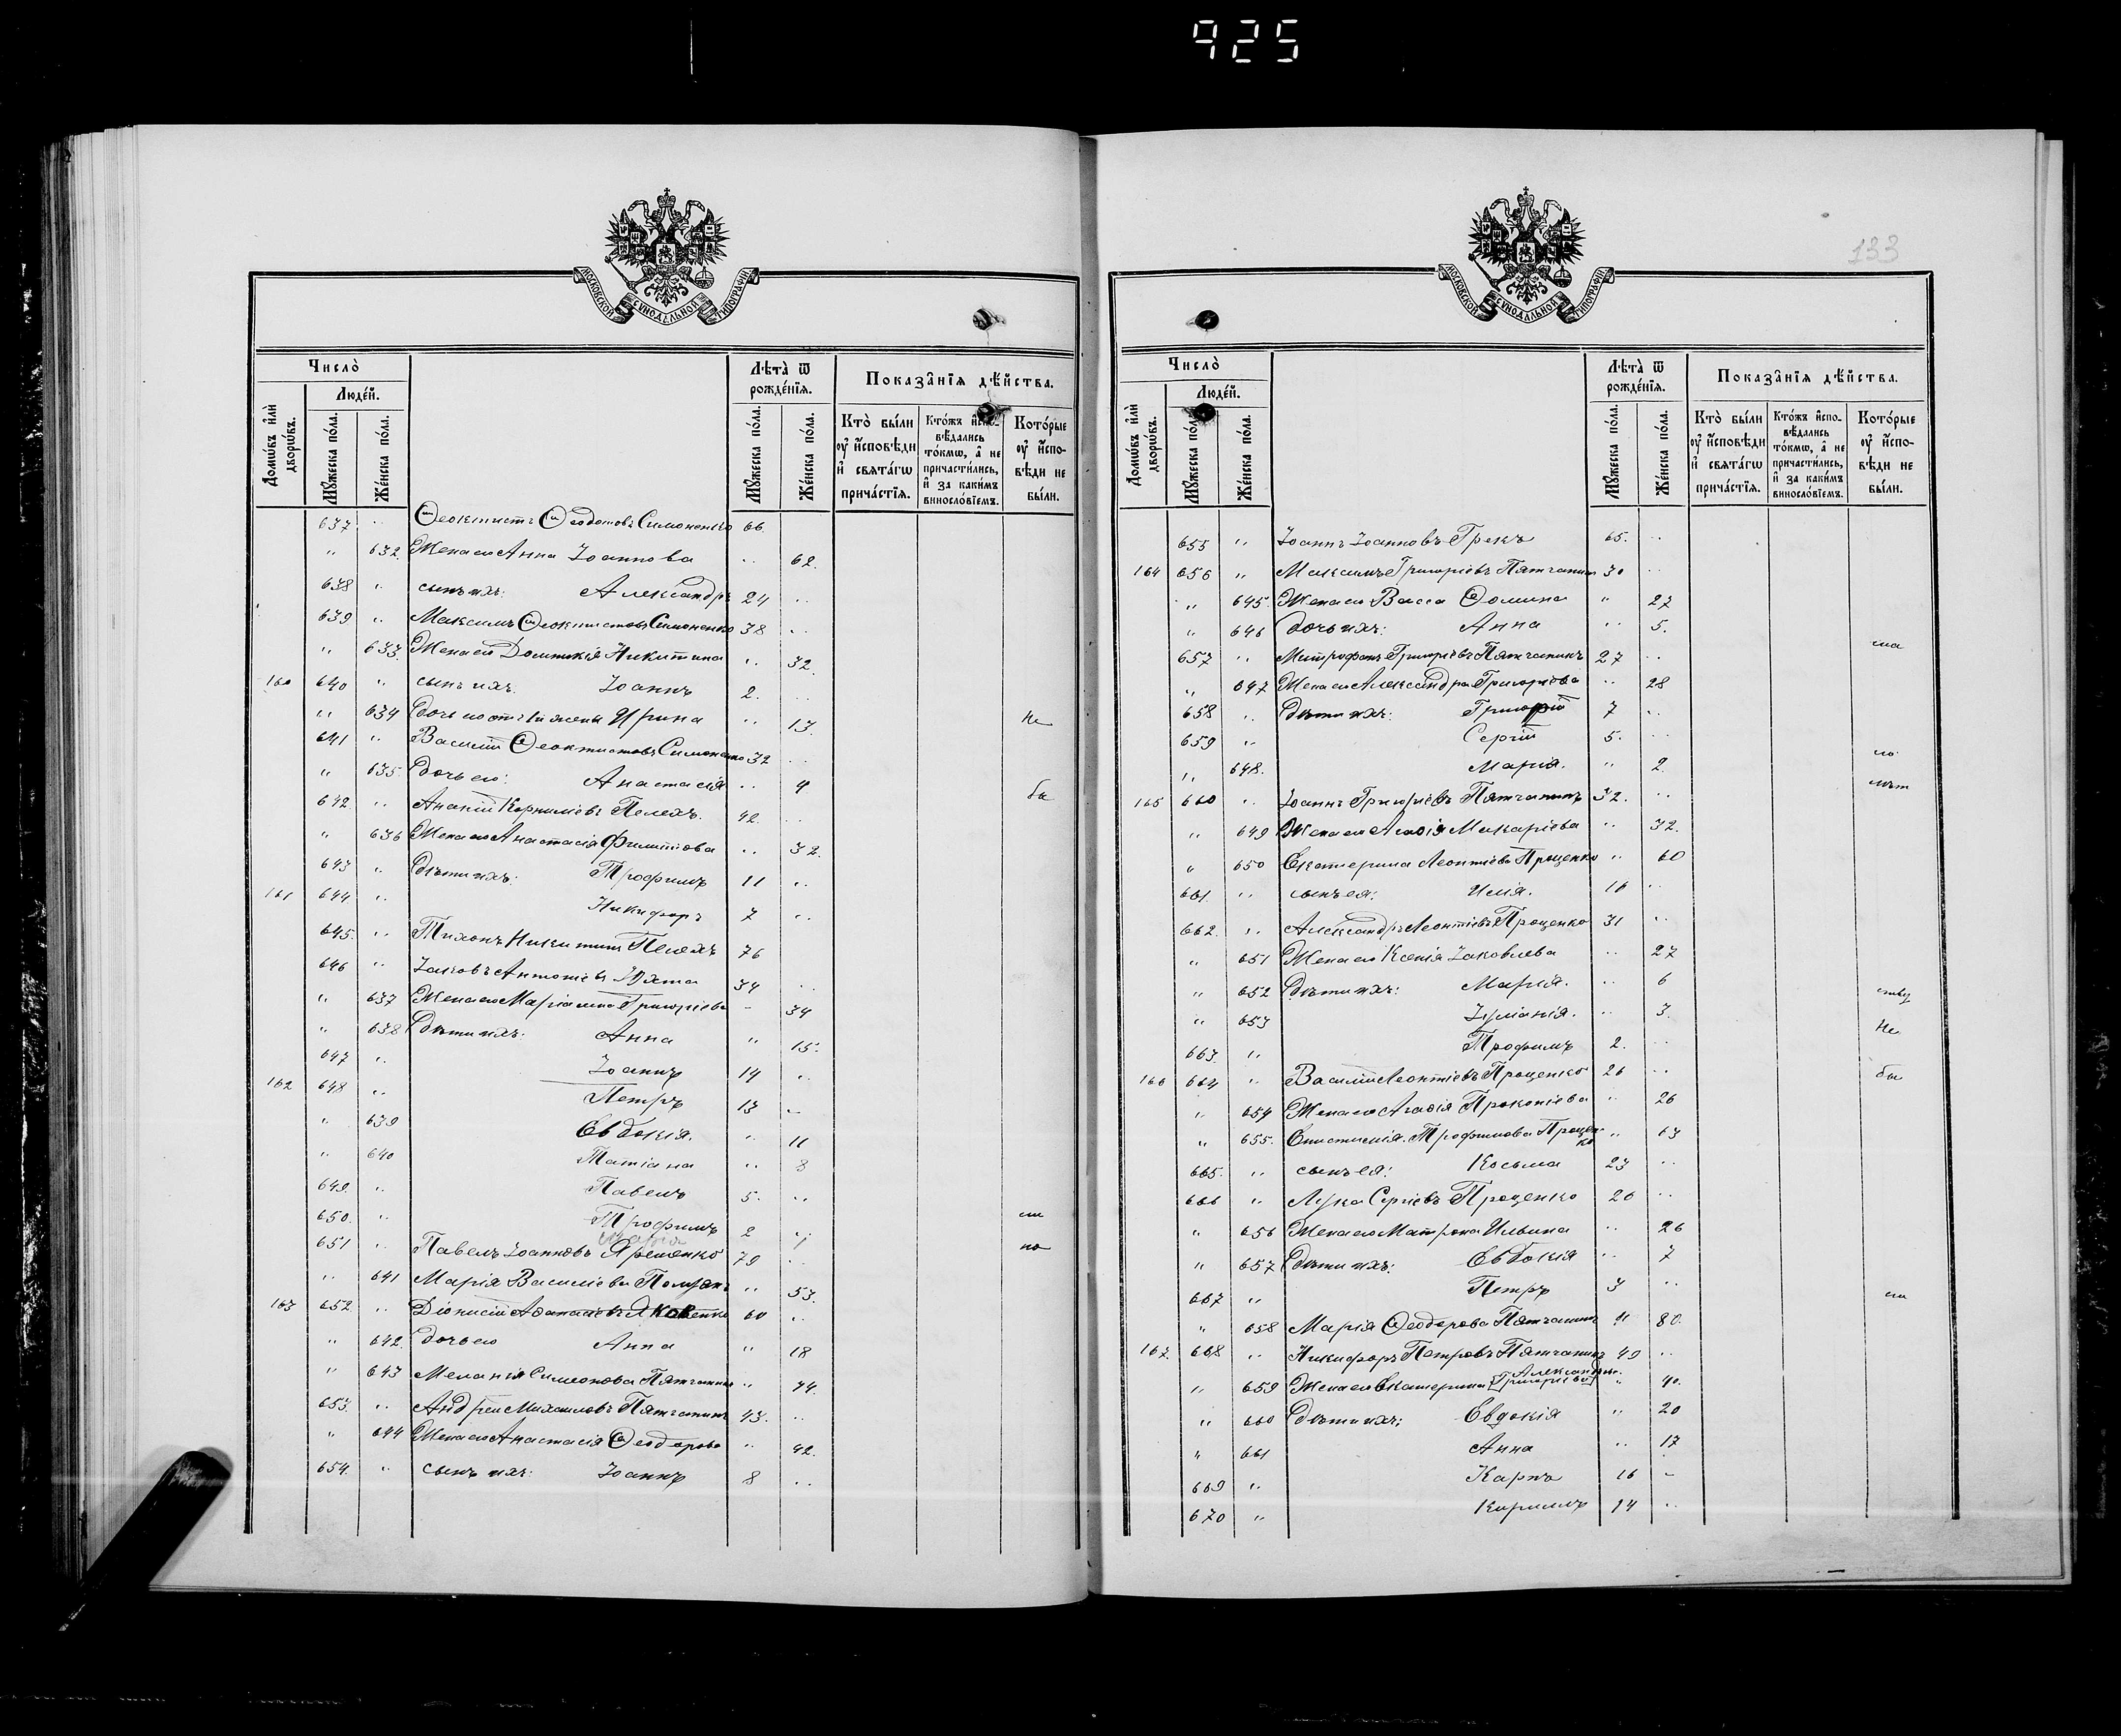 925
133
МОСКОВСКОЙ СѴНОДАЛЬНОЙ ТИПОГРАФІИ
Число̀
Людéй.
Домѡ́въ и҆лѝ дворѡ́въ.
Мꙋ́жеска по́ла.
Же́нска по́ла.
Лѣ̑та̀ ѿ рожде́нїѧ.
Мꙋ́жеска по́ла.
Же́нска по́ла.
Показа̑нїѧ дѣ́йства.
Кто̀ бы́ли оу҆ и҆́сповѣди и҆ свѧта́гѡ прича́стїѧ.
Кто́жъ и҆спо-вѣ́дались то́кмѡ, а҆ не причасти́лись, и҆ за каки́мъ винослóвїемъ.
Кото́рые оу҆ и҆́спо-вѣди не бы́ли.
637 " Ѳеоктистъ Ѳеодотовъ Симоненко 66
" 632 Жена его Анна Іоаннова " 62.
638 " сынъ ихъ: Александръ 24 "
639 " Максимъ Ѳеоктистовъ Симоненко 38 "
" 633. Жена его Домникія Никитина " 32
160 640 " сынъ ихъ. Іоаннъ 2. "
" 634 Дочь его отъ 1й жены Ирина " 13. Не
641 " Василій Ѳеоктистовъ Симоненко 32 "
" 635. Дочь его: Анастасія " 4 бы
642. " Ананій Корниліевъ Пелехъ. 42. "
" 636 Жена его Анастасія Филиппова " 32.
643 " Дѣти ихъ: Трофимъ 11 "
161 644 " Никифоръ 7 "
645. " Тихонъ Никитинъ Пелехъ 76
646 " Іаковъ Антоніевъ Мухта 34 "
" 637 Жена его Маріамна Григоріева " 34
" 638 Дѣти ихъ: Анна " 15.
647 " Іоаннъ 14 "
162 648 " Петръ 13 "
" 639 Евдокія. " 11
" 640 Татіана " 8
649. " Павелъ 5. "
650. " Трофимъ 2 " ли
Марія 1
651 " Павелъ Іоанновъ Ярешенко 79 " по
" 641 Марія Василіева " 53.
163 652. " Діонисій Аѳанасіевъ Яковенко 60 "
" 642. Дочь его Анна " 18
" 643 Меланія Симеонова Пятчанина " 74.
653. " Андрей Михаиловъ Пятчанинъ 43. "
" 644 Жена его Анастасія Ѳеодорова " 42.
654. " сынъ ихъ: Іоаннъ 8 "
МОСКОВСКОЙ СѴНОДАЛЬНОЙ ТИПОГРАФІИ
Число̀
Людéй.
Домѡ́въ и҆лѝ дворѡ́въ.
Мꙋ́жеска по́ла.
Же́нска по́ла.
Лѣ̑та̀ ѿ рожде́нїѧ.
Мꙋ́жеска по́ла.
Же́нска по́ла.
Показа̑нїѧ дѣ́йства.
Кто̀ бы́ли оу҆ и҆́сповѣди и҆ свѧта́гѡ прича́стїѧ.
Кто́жъ и҆спо-вѣ́дались то́кмѡ, а҆ не причасти́лись, и҆ за каки́мъ винослóвїемъ.
Кото́рые оу҆ и҆́спо-вѣди не бы́ли.
655 " Іоаннъ Іоанновъ Грекъ 65. "
164 656 " Максимъ Григоріевъ Пятчанинъ 30 "
" 645. Жена его Васса Ѳомина " 27
" 646 Дочь ихъ: Анна " 5.
657 " Митрофанъ Григоріевъ Пятчанинъ 27 " ма
" 647 Жена его Александра Григоріева " 28
658 " Дѣти ихъ: Григорій 7 "
659 " Сергій 5. "
" 648. Марія. " 2. ло
165 660 " Іоаннъ Григоріевъ Пятчанинъ 32. " лѣт
" 649 Жена его Агаѳія Макаріева " 32.
" 650 Екатерина Леонтіева Проценко " 60
661. " сынъ ея: Илія. 18 "
662. " Александръ Леонтіевъ Проценко 31 "
" 651 Жена его Ксенія Іаковлева " 27
" 652 Дѣти ихъ: Марія. " 6
" 653 Іуліанія. " 3. ству
663. " Трофимъ 2. " Не
166 664 " Василій Леонтіевъ Проценко 26 " бы
" 654 Жена его Агаѳія Прокопіева " 26
" 655. Епистимія Трофимова Проценко " 63
665. " сынъ ея: Косьма 23 "
666 " Лука Сергіевъ Проценко 26 "
" 656 Жена его Матрона Ильина " 26
" 657 Дѣти ихъ: Евдокія " 7
667 " Петръ 3 " ли
" 658 Марія Ѳеодорова Пятчанина " 80.
167. 668 " Никифоръ Петровъ Пятчанинъ 49 "
" 659 Жена его Екатерина [Григоріева] Александр. " 40.
" 660 Дѣти ихъ: Евдокія " 20
" 661 Анна " 17
669 " Карпъ 16 "
670 " Кириллъ 14 "